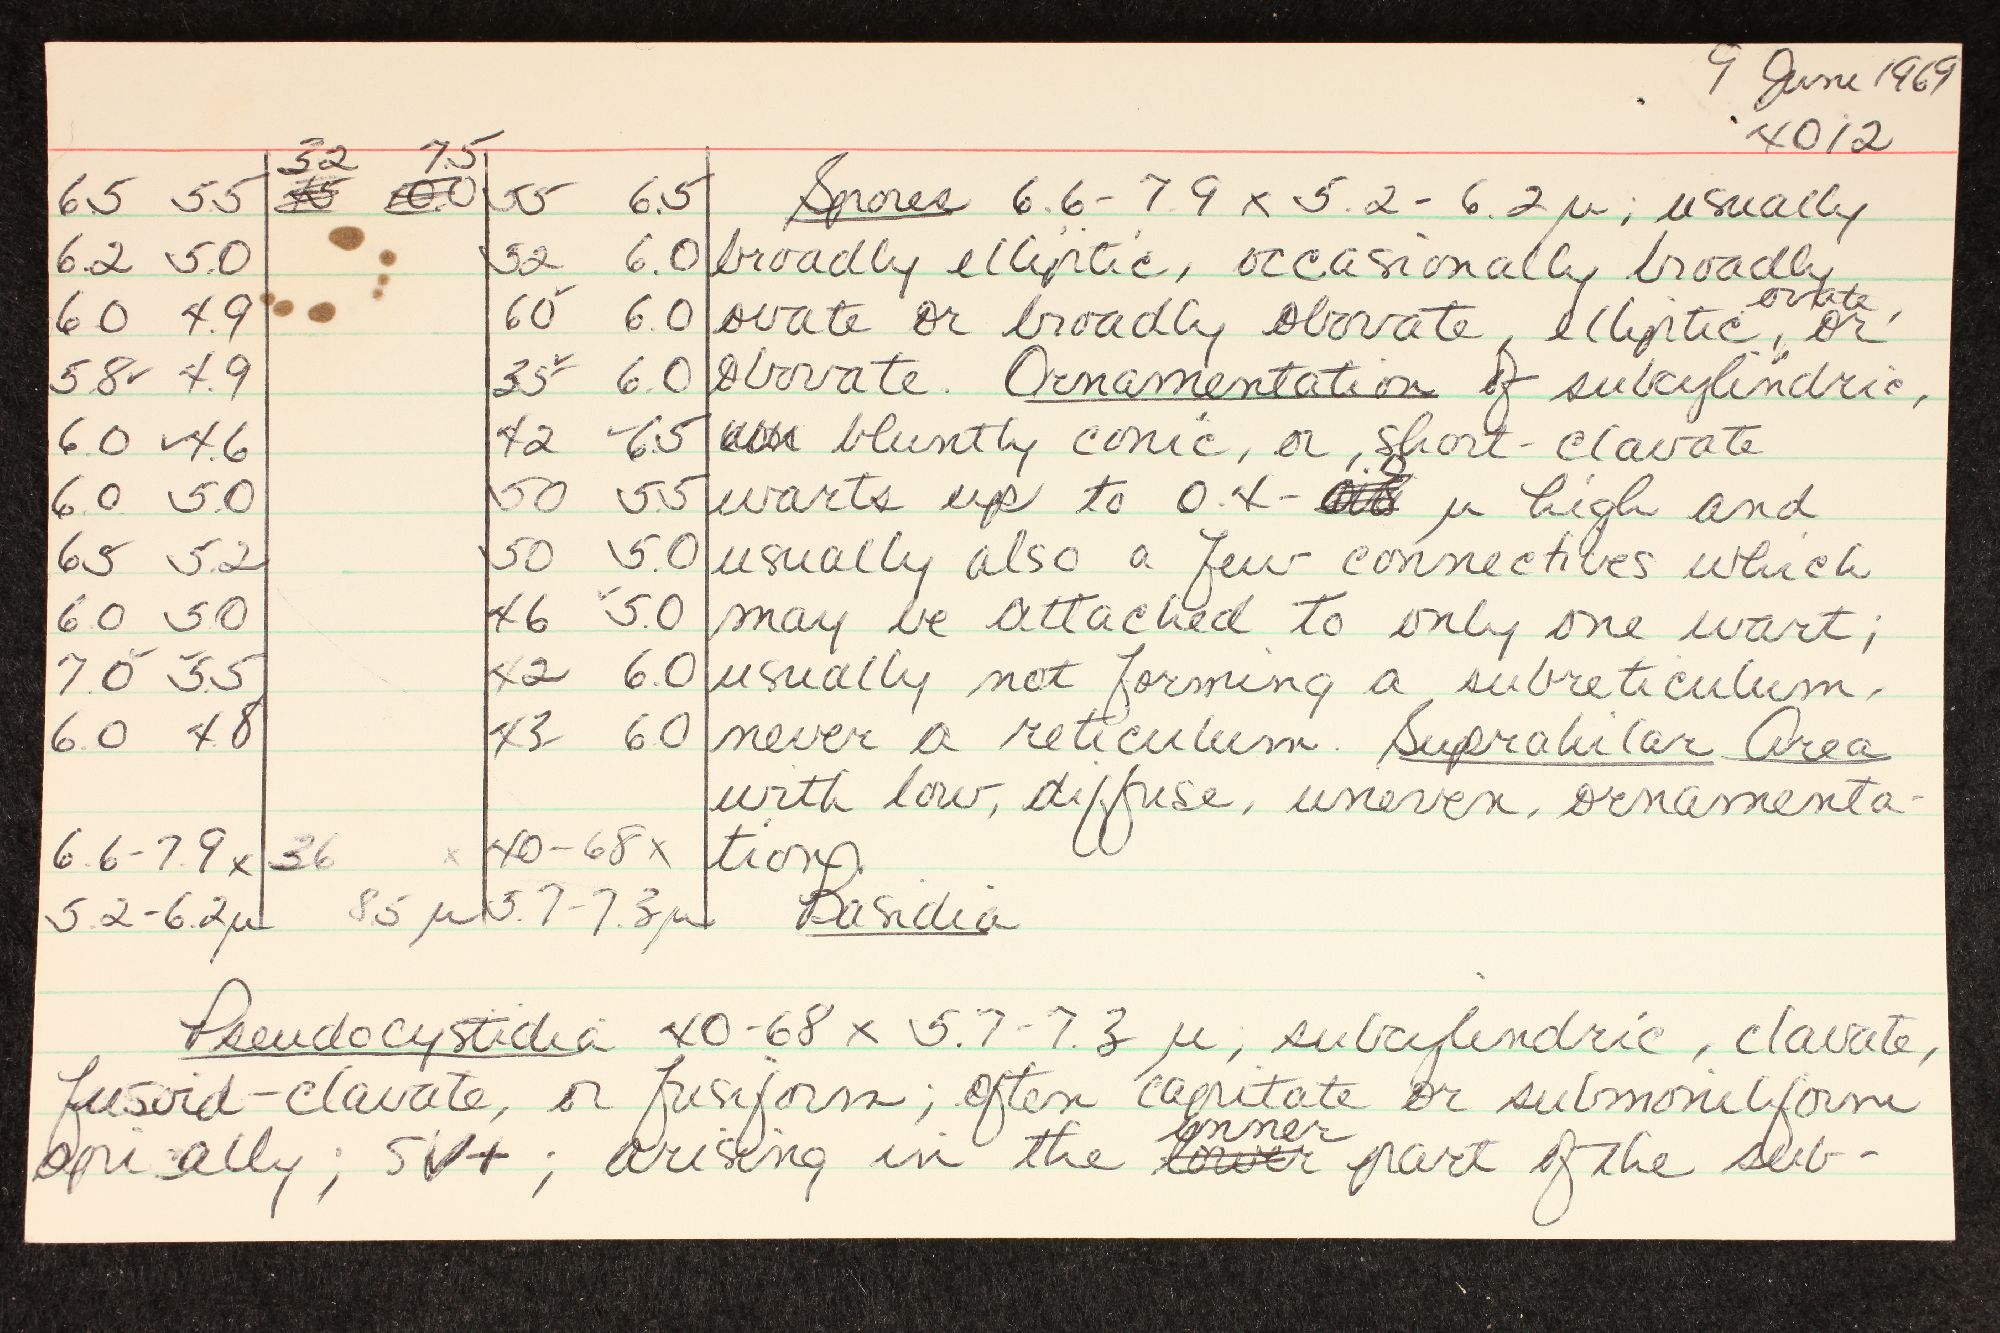 9 June 1969
4012
32 7.5
6.5 5.5 55 6.5 Spores 6.6-7.9 x 5.2-6.2 µ; usually
6.2 5.0 52 6.0 broadly elliptic, occasionally broadly
6.0 4.9 60 6.0 ovate or broadly obovate, elliptic, ovate, or
5.8 4.9 35 6.0 obovate. Ornamentation of subcylindric,
6.0 4.6 42 6.5 bluntly conic, or short-clavate
6.0 5.0 50 5.5 warts up to 0.4-1.2 µ high and
6.5 5.2 50 5.0 usually also a few connectives which
6.0 5.0 46 5.0 may be attached to only one wart;
7.0 5.5 42 6.0 usually not forming a subreticulum,
6.0 4.8 43 6.0 never a reticulum. Suprahilar Area
with low, diffuse, uneven, ornamenta-
6.6-7.9 x 36 x 40-68 x tion.
5.2-6.2µ 8.5 µ 5.7-7.3µ Basidia
Pseudocystidia 40-68 x 5.7-7.3 µ; subcylindric, clavate,
fusoid-clavate, or fusiform; often capitate or submoniliform
apically; SV+; arising in the lower inner part of the sub-